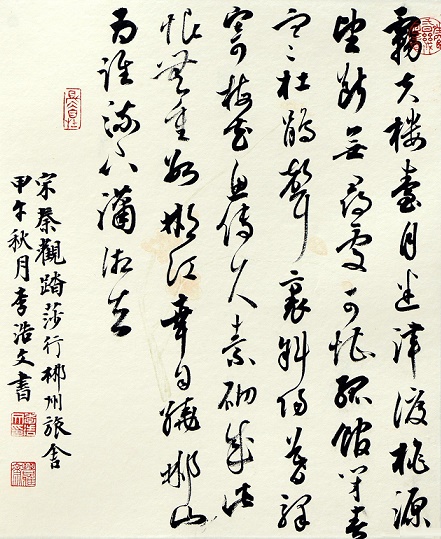 霧失楼臺月迷津渡桃源
望断無尋處可堪孤館閉春
寒杜鵑聲裏斜陽暮驛
寄梅花魚傳尺素砌成此
恨無重數郴江幸自繞郴山
為誰流下瀟湘去
宋秦觀踏莎行郴州旅舍
甲午秋月李浩文書